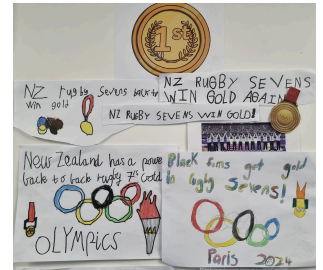 1st
NZ rugby Sevens back to
win gold
NZ RUGBY SEVENS
WIN GOLD AGAIN
NZ RUGBY SEVENS WIN GOLD!
New Zealand has a power
back to back rugby 7's Gold
OLYMPICS
Black firns get gold
in rugby Sevens!
Paris 2024